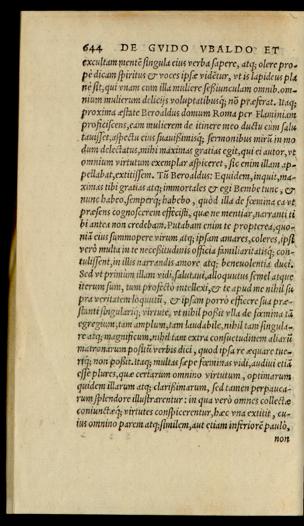 644 DE GVIDO VBALDO ET
excultam mentē singula eius verba sapere, atq; olere pro-
pè dicam spiritus & voces ipsæ vidētur, vt is lapideus pla
nè sit, qui vnam cum illa muliere sessiunculam omnib. om-
nium mulierum delicijs voluptatibusq́; nō præferat. Itaq;
proxima æstate Beroaldus domum Roma per Flaminiam
proficiscens, eam mulierem de itinere meo ductu cum salu
tauisset, aspectu eius suauissimisq́; sermonibus mirū in mo
dum delectatus, mihi maximas gratias egit, qui ei autor, vt
omnium virtutum exemplar aspiceret, sic enim illam ap-
pellabat, extitissem. Tū Beroaldus: Equidem, inquit, ma-
ximas tibi gratias atq; immortales & egi Bembe tunc, &
nunc habeo, semperq́; habebo, quòd illa de fœmina ea vt
præsens cognoscerem effecisti, quæ ne mentiar, narranti ti
bi antea non credebam. Putabam enim te propterea, quo-
niā eius summopere virum atq; ipsam amares, coleres, ipsi
verò multa in te necessitudinis officia familiaritatisq́; con-
tulissent, in illis narrandis amore atq; beneuolentia duci.
Sed vt primùm illam vidi, salutaui, alloquutus semel atque
iterum sum, tum profectò intellexi, & te apud me nihil su
pra veritatem loquutū, & ipsam porrò efficere sua præ-
stanti singulariq́; virtute, vt nihil possit vlla de fœmina tā
egregium, tam amplum, tam laudabile, nihil tam singula-
re atq; magnificum, nihil tam extra consuetudinem aliarū
matronarum positū verbis dici, quod ipsa re æquare tue-
riq́; non possit. Itaq; multas sæpe fœminas vidi, audiui etiā
esse plures, quæ certarum omnino virtutum, optimarum
quidem illarum atq; clarissimarum, sed tamen perpauca-
rum splendore illustrarentur: in qua verò omnes collectæ
coniunctæq́; virtutes conspicerentur, hæc vna extitit, cu-
ius omnino parem atq; similem, aut etiam inferiorē paulò,
non